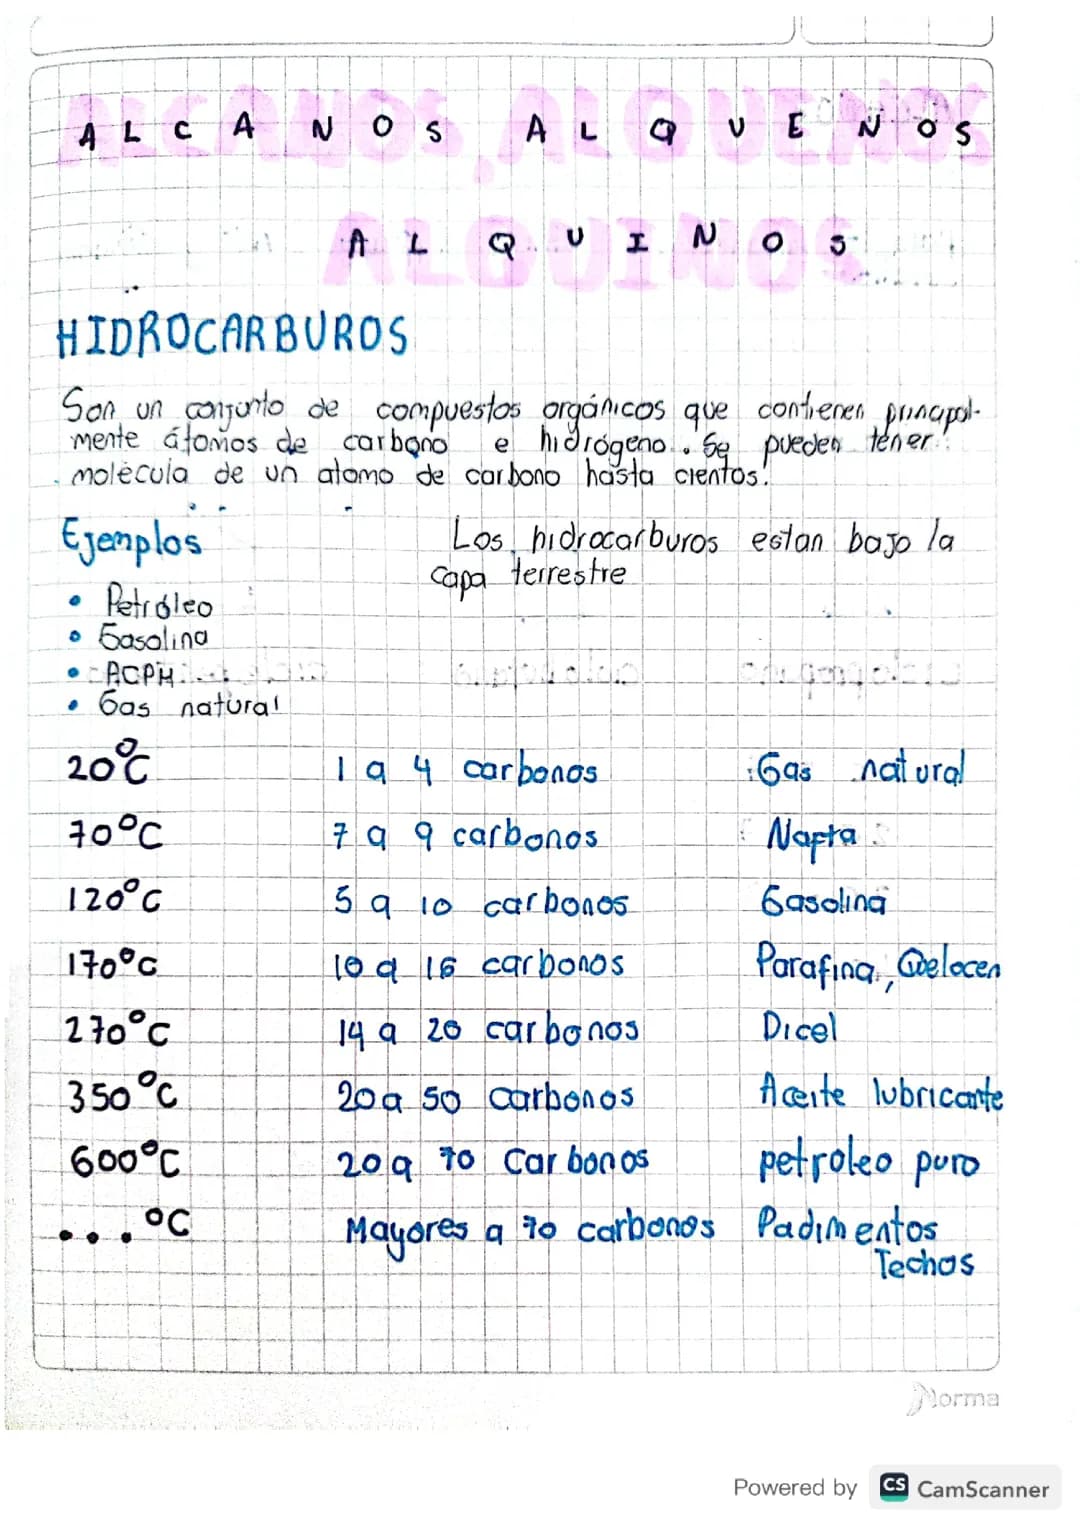 ALCANOS, ALQUENOS
ALQUINOS
HIDROCARBUROS
Son un conjunto de compuestos orgánicos que contienen principal-
mente átomos de carbono e hidrógeno. Se pueden tener
molécula de un atomo de carbono hasta cientos.
Ejemplos
• Petróleo
• Gasolina
• ACPM
• Gas natural
Los hidrocarburos estan bajo la
capa terrestre
20°C 1 a 4 carbonos Gas natural
70°C 7 a 9 carbonos Nafta
120°C 5 a 10 carbonos Gasolina
170°C 10 a 16 carbonos Parafina,
270°C 14 a 20 carbonos Dicel
350°C 20 a 50 carbonos Aceite lubricante
600°C 20 a 70 Carbonos petroleo puro
...°C Mayores a 70 carbonos Padimentos
Techos
Norma
Powered by CS CamScanner